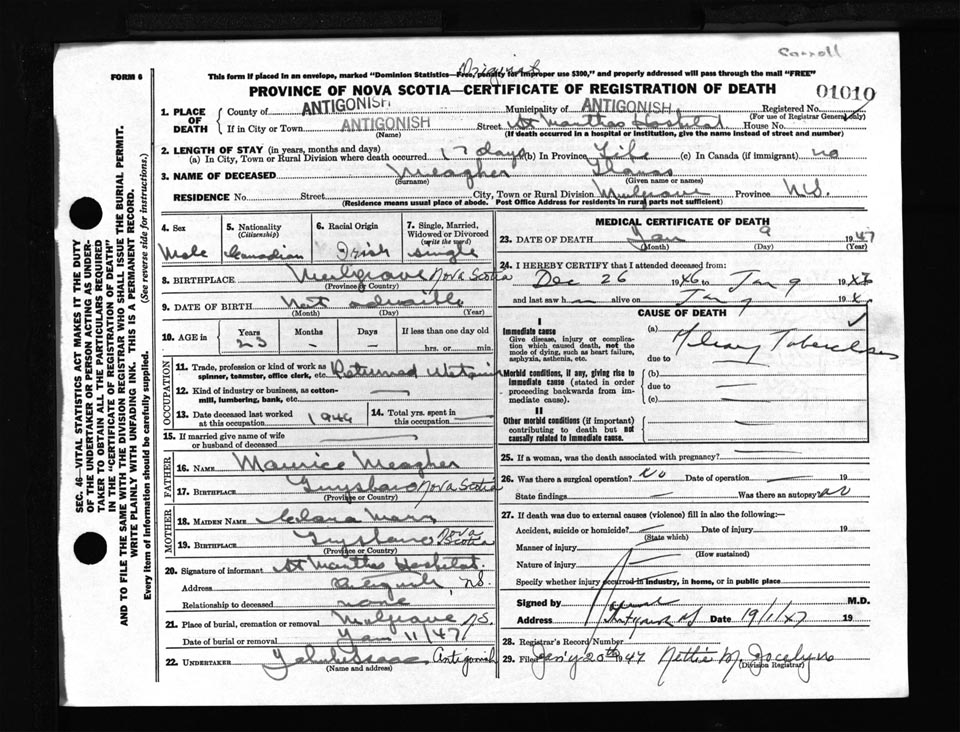 Carroll
FORM 6
Antigonish
This form if placed in an envelope, marked "Dominion Statistics—Free, penalty for improper use $300," and properly addressed will pass through the mail "FREE"
PROVINCE OF NOVA SCOTIA—CERTIFICATE OF REGISTRATION OF DEATH
01010
1. PLACE OF DEATH
County of ANTIGONISH Municipality of ANTIGONISH Registered No.
(For use of Registrar General only)
If in City or Town ANTIGONISH Street St Marthas Hospital House No.
(Name) (If death occurred in a hospital or institution, give the name instead of street and number)
2. LENGTH OF STAY (in years, months and days)
(a) In City, Town or Rural Division where death occurred 17 days (b) In Province Life (c) In Canada (if immigrant) no
3. NAME OF DECEASED Meagher
(Surname) (Given name or names)
RESIDENCE No. Street City, Town or Rural Division Mulgrave Province N.S.
(Residence means usual place of abode. Post Office Address for residents in rural parts not sufficient)
4. Sex 5. Nationality 6. Racial Origin 7. Single, Married, Widowed or Divorced
(Citizenship) (write the word)
Male Canadian Irish Single
8. BIRTHPLACE Mulgrave Nova Scotia
(Province or Country)
9. DATE OF BIRTH Not
(Month) (Day) (Year)
10. AGE in Years Months Days If less than one day old
23 – – hrs. or min.
OCCUPATION
11. Trade, profession or kind of work as spinner, teamster, office clerk, etc. Returned
12. Kind of industry or business, as cotton-mill, lumbering, bank, etc. —
13. Date deceased last worked at this occupation 1946
14. Total yrs. spent in this occupation —
15. If married give name of wife or husband of deceased —
FATHER
16. NAME Maurice Meagher
17. BIRTHPLACE Guysboro Nova Scotia
(Province or Country)
MOTHER
18. MAIDEN NAME
19. BIRTHPLACE Guysboro Nova Scotia
(Province or Country)
20. Signature of informant St Marthas Hospital
Address Antigonish, N.S.
Relationship to deceased none
21. Place of burial, cremation or removal Mulgrave N.S.
Date of burial or removal Jan 11/47
22. UNDERTAKER Antigonish
(Name and address)
MEDICAL CERTIFICATE OF DEATH
23. DATE OF DEATH Jan 9 1947
(Month) (Day) (Year)
24. I HEREBY CERTIFY that I attended deceased from:
Dec 26 1946 to Jan 9 19
and last saw h alive on Jan 9 19
CAUSE OF DEATH
I
Immediate cause
Give disease, injury or complication which caused death, not the mode of dying, such as heart failure, asphyxia, asthenia, etc.
(a) Miliary Tuberculosis
due to
Morbid conditions, if any, giving rise to immediate cause (stated in order proceeding backwards from immediate cause).
(b)
due to
(c)
II
Other morbid conditions (if important) contributing to death but not causally related to immediate cause.
25. If a woman, was the death associated with pregnancy? —
26. Was there a surgical operation? No Date of operation — 19
State findings Was there an autopsy? no
27. If death was due to external causes (violence) fill in also the following:—
Accident, suicide or homicide? Date of injury 19
(State which)
Manner of injury
(How sustained)
Nature of injury
Specify whether injury occurred in industry, in home, or in public place
Signed by M.D.
Address Antigonish NS Date 19/1/47 19
28. Registrar's Record Number
29. Filed Jan'y 20th 1947 Nettie M. Jocelyn
(Division Registrar)
SEC. 46—VITAL STATISTICS ACT MAKES IT THE DUTY
OF THE UNDERTAKER OR PERSON ACTING AS UNDER-
TAKER TO OBTAIN ALL THE PARTICULARS REQUIRED
IN THE "CERTIFICATE OF REGISTRATION OF DEATH"
AND TO FILE THE SAME WITH THE DIVISION REGISTRAR WHO SHALL ISSUE THE BURIAL PERMIT.
WRITE PLAINLY WITH UNFADING INK. THIS IS A PERMANENT RECORD.
Every item of information should be carefully supplied. (See reverse side for instructions.)